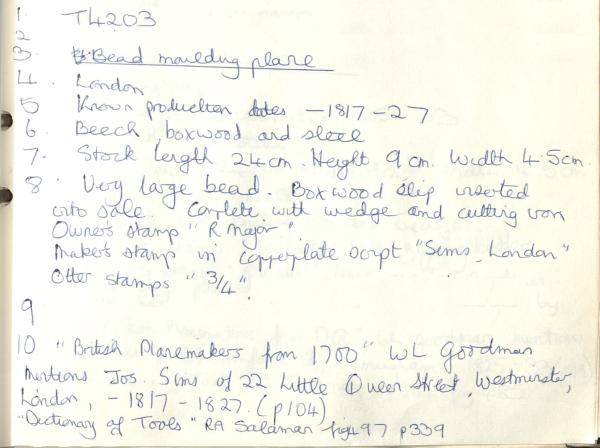 1. T4203
2
3. Bead moulding plane
4. London
5 Known production dates - 1817 - 27
6. Beech, boxwood and steel
7. Stock length 24cm. Height 9cm. Width 4.5cm.
8 Very large bead. Boxwood slip inserted
into sole. Complete with wedge and cutting iron
Owner's stamp "R Major"
Maker's stamp in copperplate script "Sims London"
Other stamps "3/4".
9
10 "British Planemakers from 1700" WL Goodman
mentions Jos. Sims of 22 Little Queen Street, Westminster,
London, - 1817 - 1827. (p104)
"Dictionary of Tools" RA Salaman fig497 p339